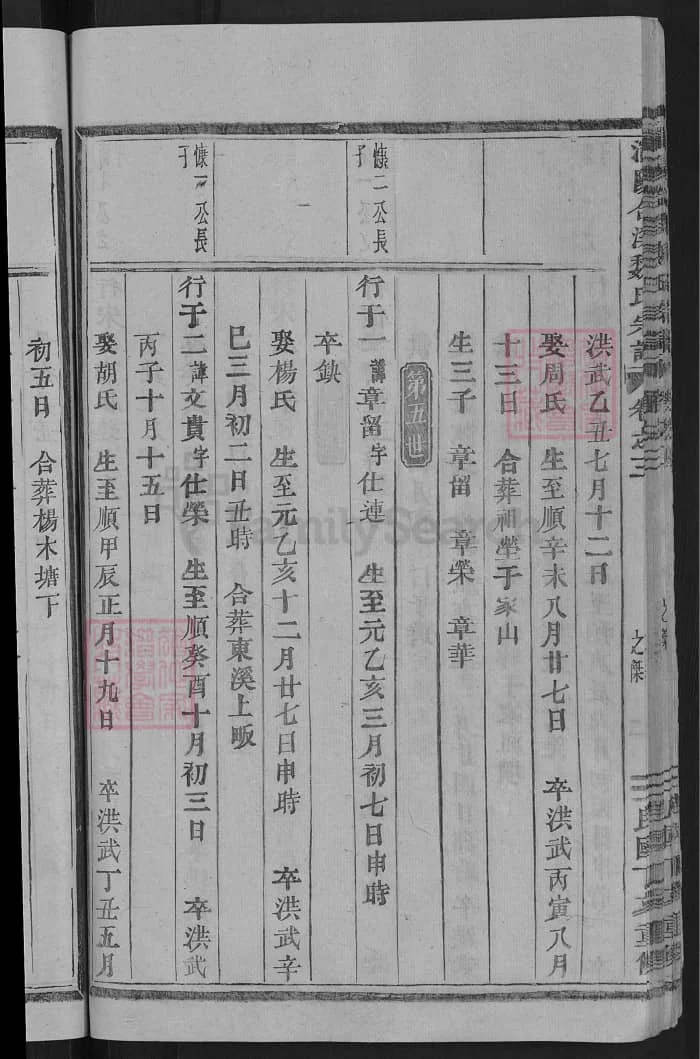 洪武乙丑七月十二日
娶周氏 生至順辛未八月廿七日 卒洪武丙寅八月
十三日 合葬祖塋于家山
生三子 章留 章榮 章華
第五世
慷二公長子
行于一諱章留字仕連 生至元乙亥三月初七日申時
卒缺
娶楊氏 生至元乙亥十二月廿七日申時 卒洪武辛
巳三月初二日丑時 合葬東溪上畈
慷一公長子
行于二諱文貴字仕榮 生至順癸酉十月初三日 卒洪武
丙子十月十五日
娶胡氏 生至順甲辰正月十九日 卒洪武丁丑五月
初五日 合葬楊木塘下
魏氏宗譜 卷之三
之傑
FamilySearch